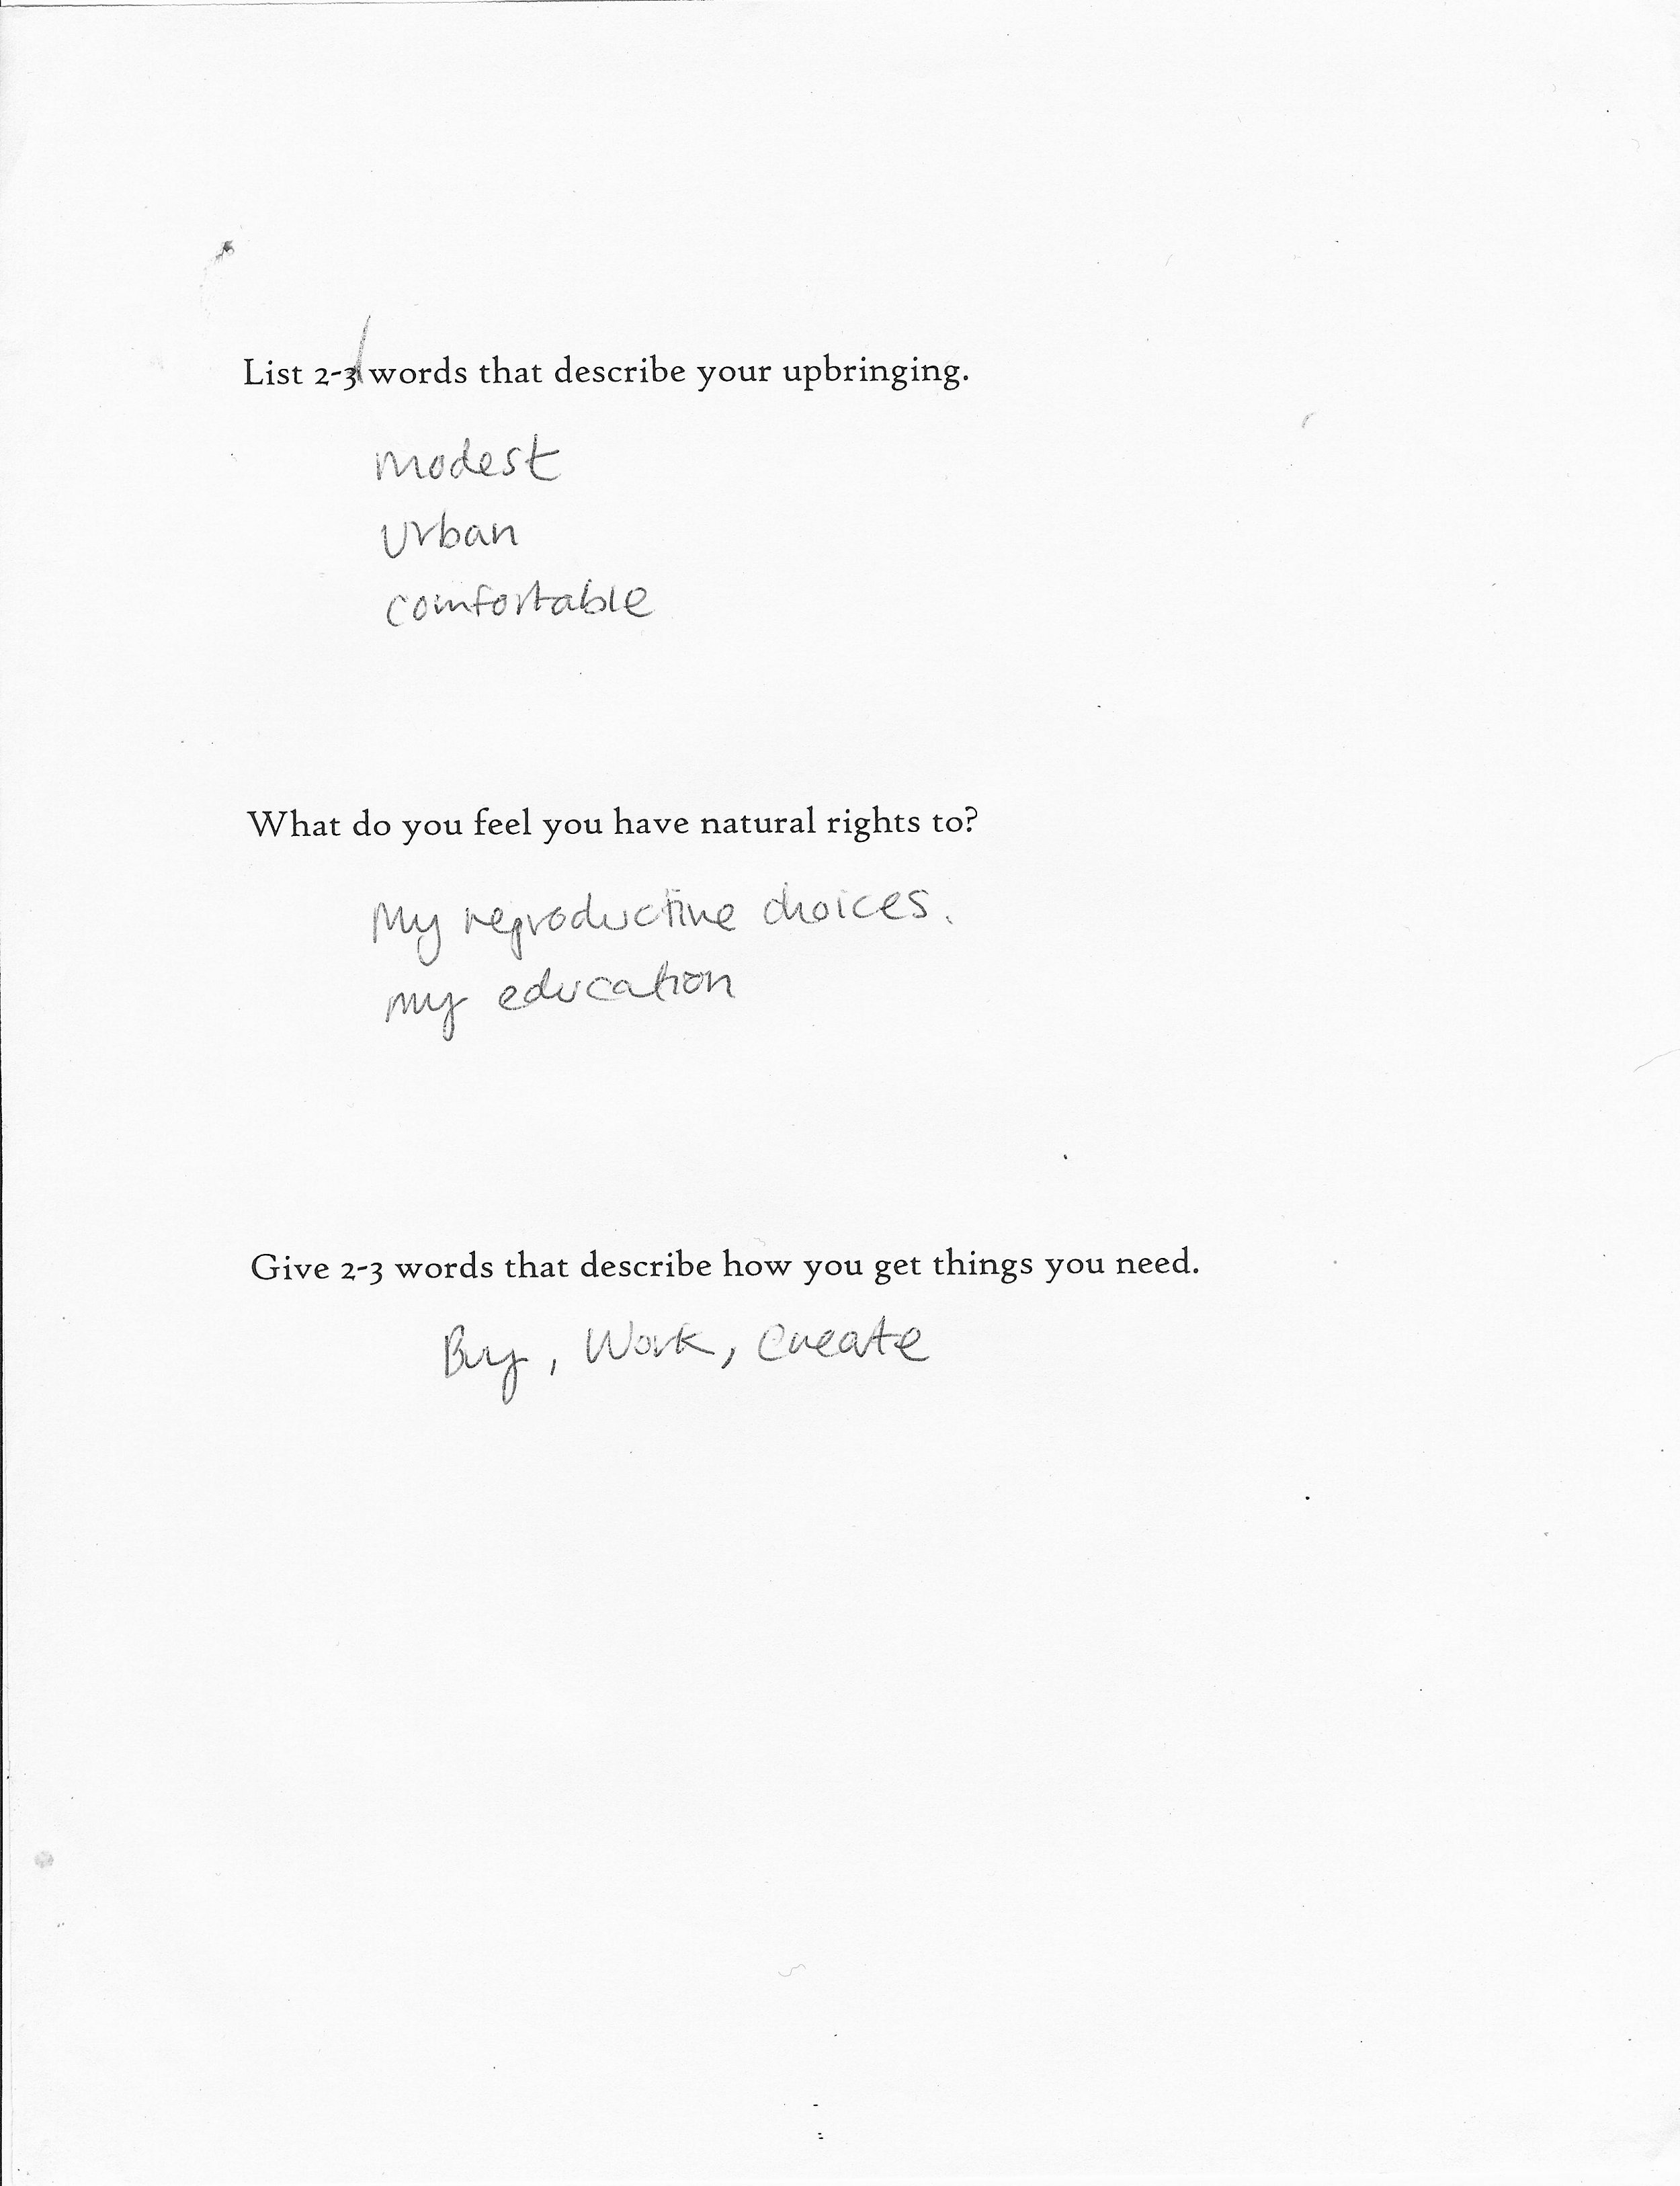 List 2-3 words that describe your upbringing.
modest
urban
comfortable
What do you feel you have natural rights to?
My reproductive choices.
my education
Give 2-3 words that describe how you get things you need.
Buy, Work, create